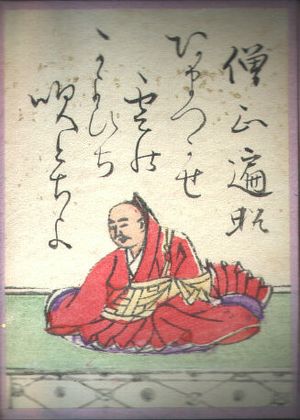 僧正遍昭
あまつかせ
雲の
かよひち
吹とちよ